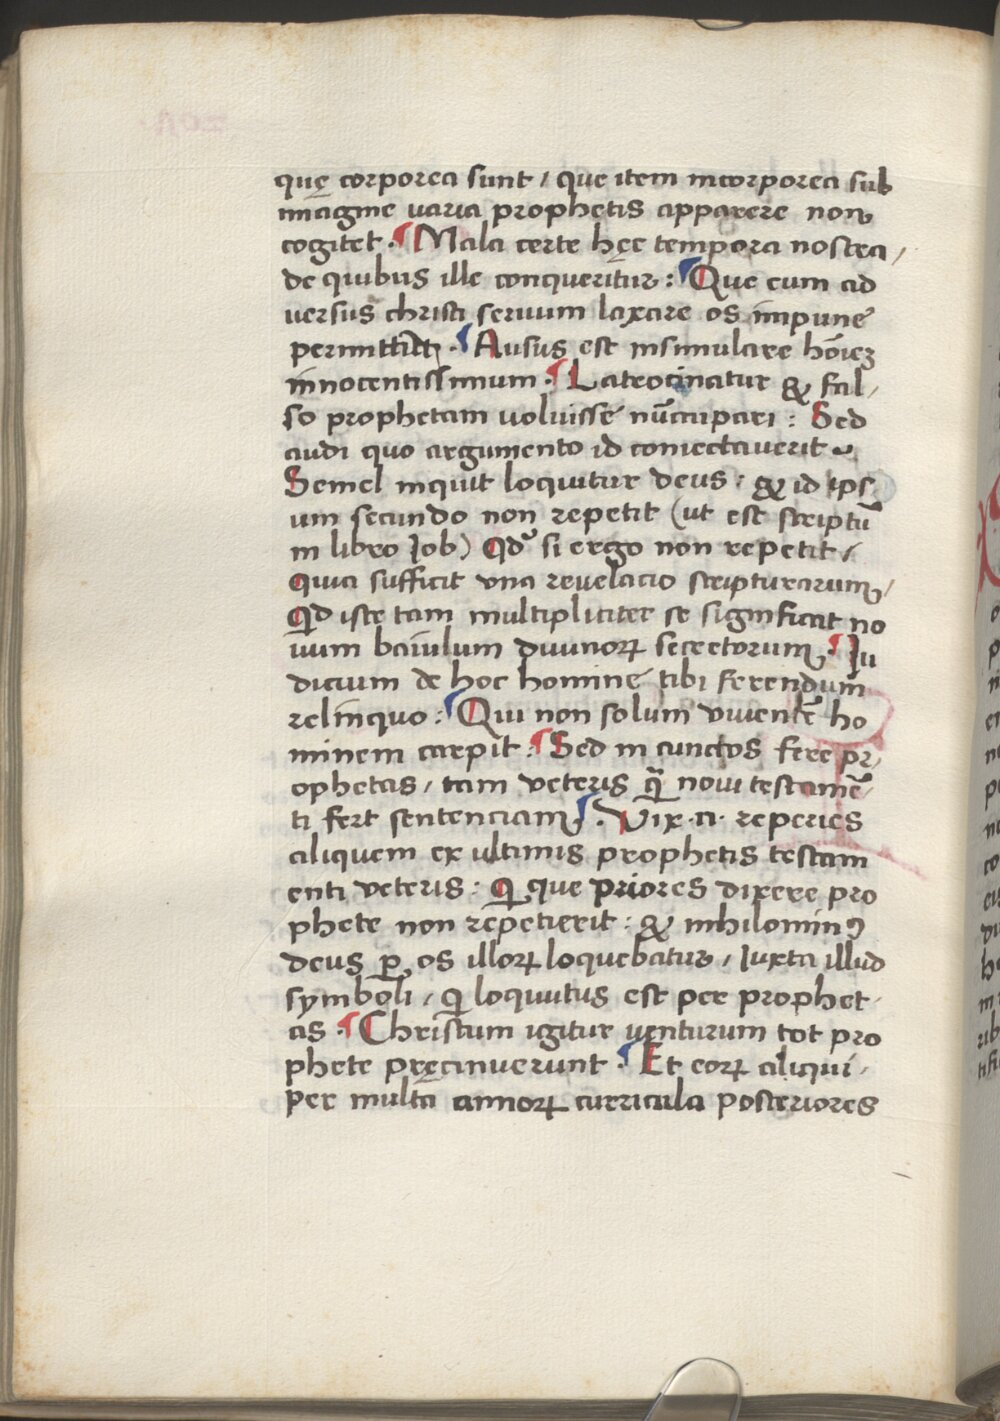 quę corporea sunt / que item incorporea sub
imagine uaria prophetis apparere non
cogitet · ¶ Mala certe hęc tempora nostra /
de quibus ille conqueritur : ¶ Que cum ad
uersus christi seruum laxare os impune
permittat̃ · ¶ Ausus est insimulare hōiez
innocentissimum · ¶ Latrocinatur & fal /
so prophetam uoluisse nūccupari : Sed
audi quo argumento id coniectauerit
Semel inquit loquitur deus : & id ips
um secundo non repetit (ut est scriptū
in libro Job) Qd' si ergo non repetit /
Quia sufficit vna reuelacio scripturarum /
Qđ iste tam multipliciter se significat no
uum baiulum diuinoꝝ secretorum · ¶ Ju
dicium de hoc homine tibi ferendum
relinquo : ¶ Qui non solum viuentē ho
minem carpit : ¶ Sed in cunctos fere pr /
ophetas / tam veteris q̃ȝ noui testamē /
ti fert sentenciam ¶ . Vix · a · reperies
aliquem ex ultimis prophetis testam
enti veteris : Qị que priores dixere pro
phete non repetierit : & nihilominꝯ
deus ꝑ os illoꝝ loquebatur / Juxta illud
symboli / Qị loquutus est per prophet ·
as · ¶ Christum igitur uenturum tot pro
phete pręcinuerunt · ¶ Et eoꝝ aliqui ·
per multa annoꝝ curricula posteriores